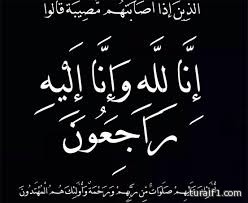 الذين إذا أصابتهم مصيبة قالوا
إِنَّا لِلَّهِ وَإِنَّا إِلَيْهِ
رَاجِعُونَ
أُولَئِكَ عَلَيْهِمْ صَلَوَاتٌ مِنْ رَبِّهِمْ وَرَحْمَةٌ وَأُولَئِكَ هُمُ الْمُهْتَدُونَ
turaif1.com